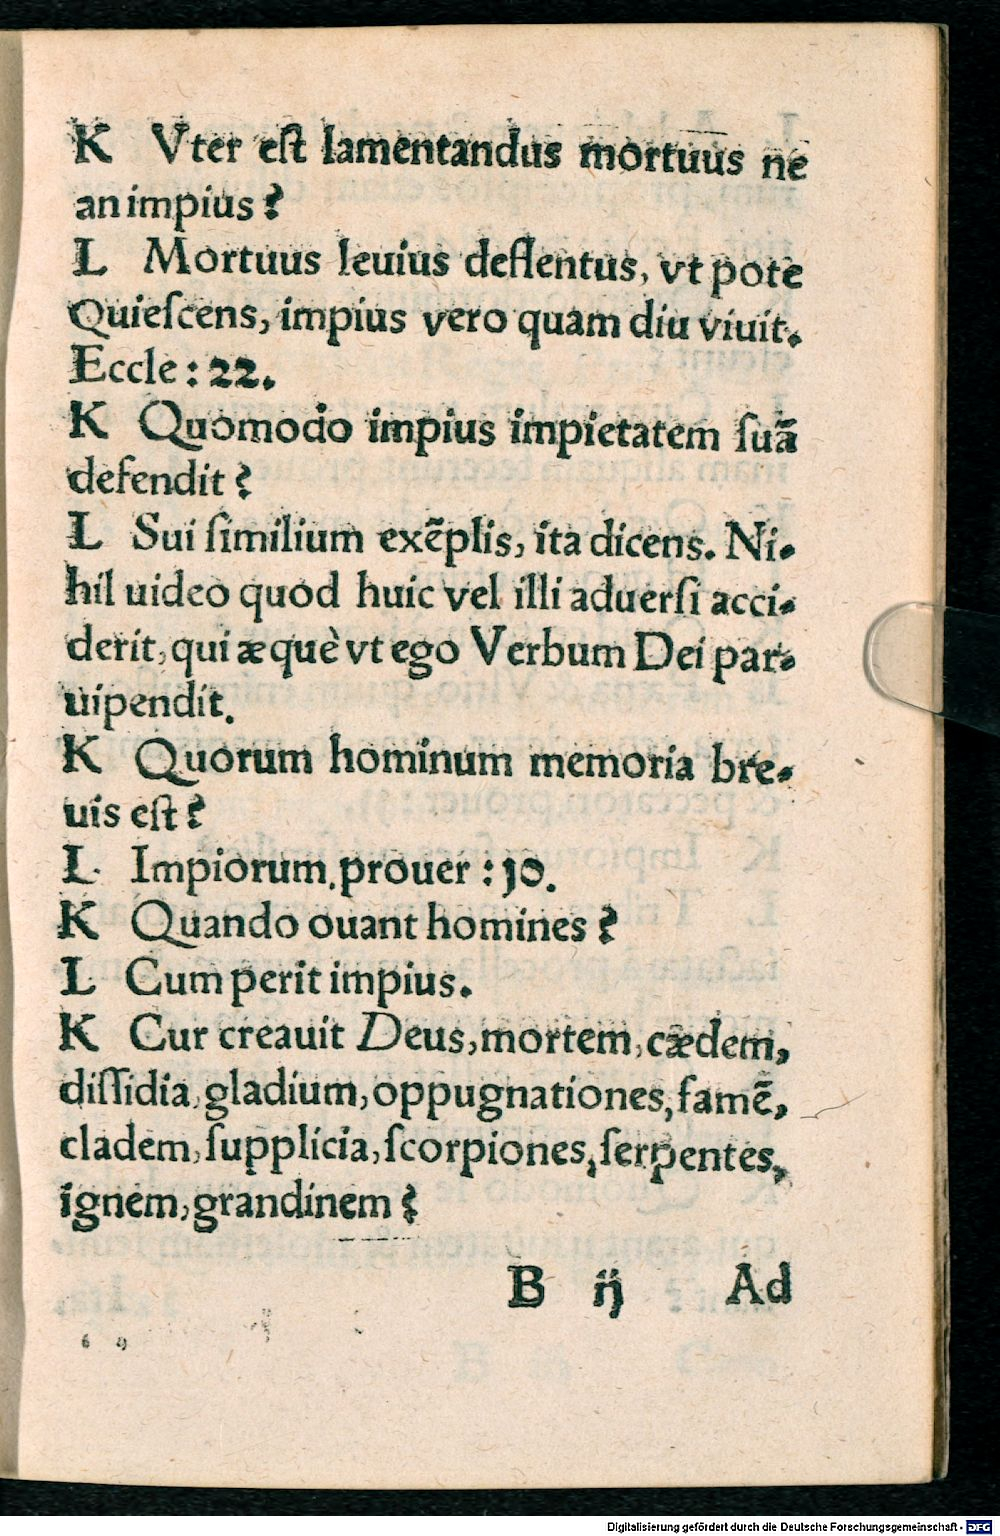 K Vter eſt lamentandus mortuus ne
an impius?
L Mortuus leuius deflentus, vt pote
Quieſcens, impius vero quam diu viuit.
Eccle: 22.
K Quomodo impius impietatem ſuā
defendit?
L Sui ſimilium exēplis, ita dicens. Ni-
hil uideo quod huic vel illi aduerſi acci-
derit, qui æquè vt ego Verbum Dei par-
uipendit.
K Quorum hominum memoria bre-
uis eſt?
L Impiorum, prouer: 10.
K Quando ouant homines?
L Cum perit impius.
K Cur creauit Deus, mortem, cædem,
diſſidia, gladium, oppugnationes, famē,
cladem, ſupplicia, ſcorpiones, ſerpentes,
ignem, grandinem?
B ij Ad
Digitalisierung gefördert durch die Deutsche Forschungsgemeinschaft - DFG